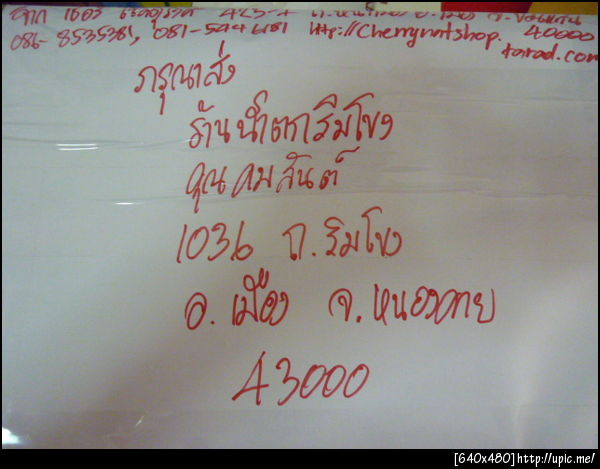 จาก เชอรี่ 423-4 ถ. อ.เมือง จ.ขอนแก่น
086-8535381, 081-5944181 http://Cherrynutshop. 40000
tarad.com
กรุณาส่ง
ร้านน้ำตกริมโขง
คุณคมสันต์
1036 ถ.ริมโขง
อ.เมือง จ.หนองคาย
43000
[640x480]http://upic.me/